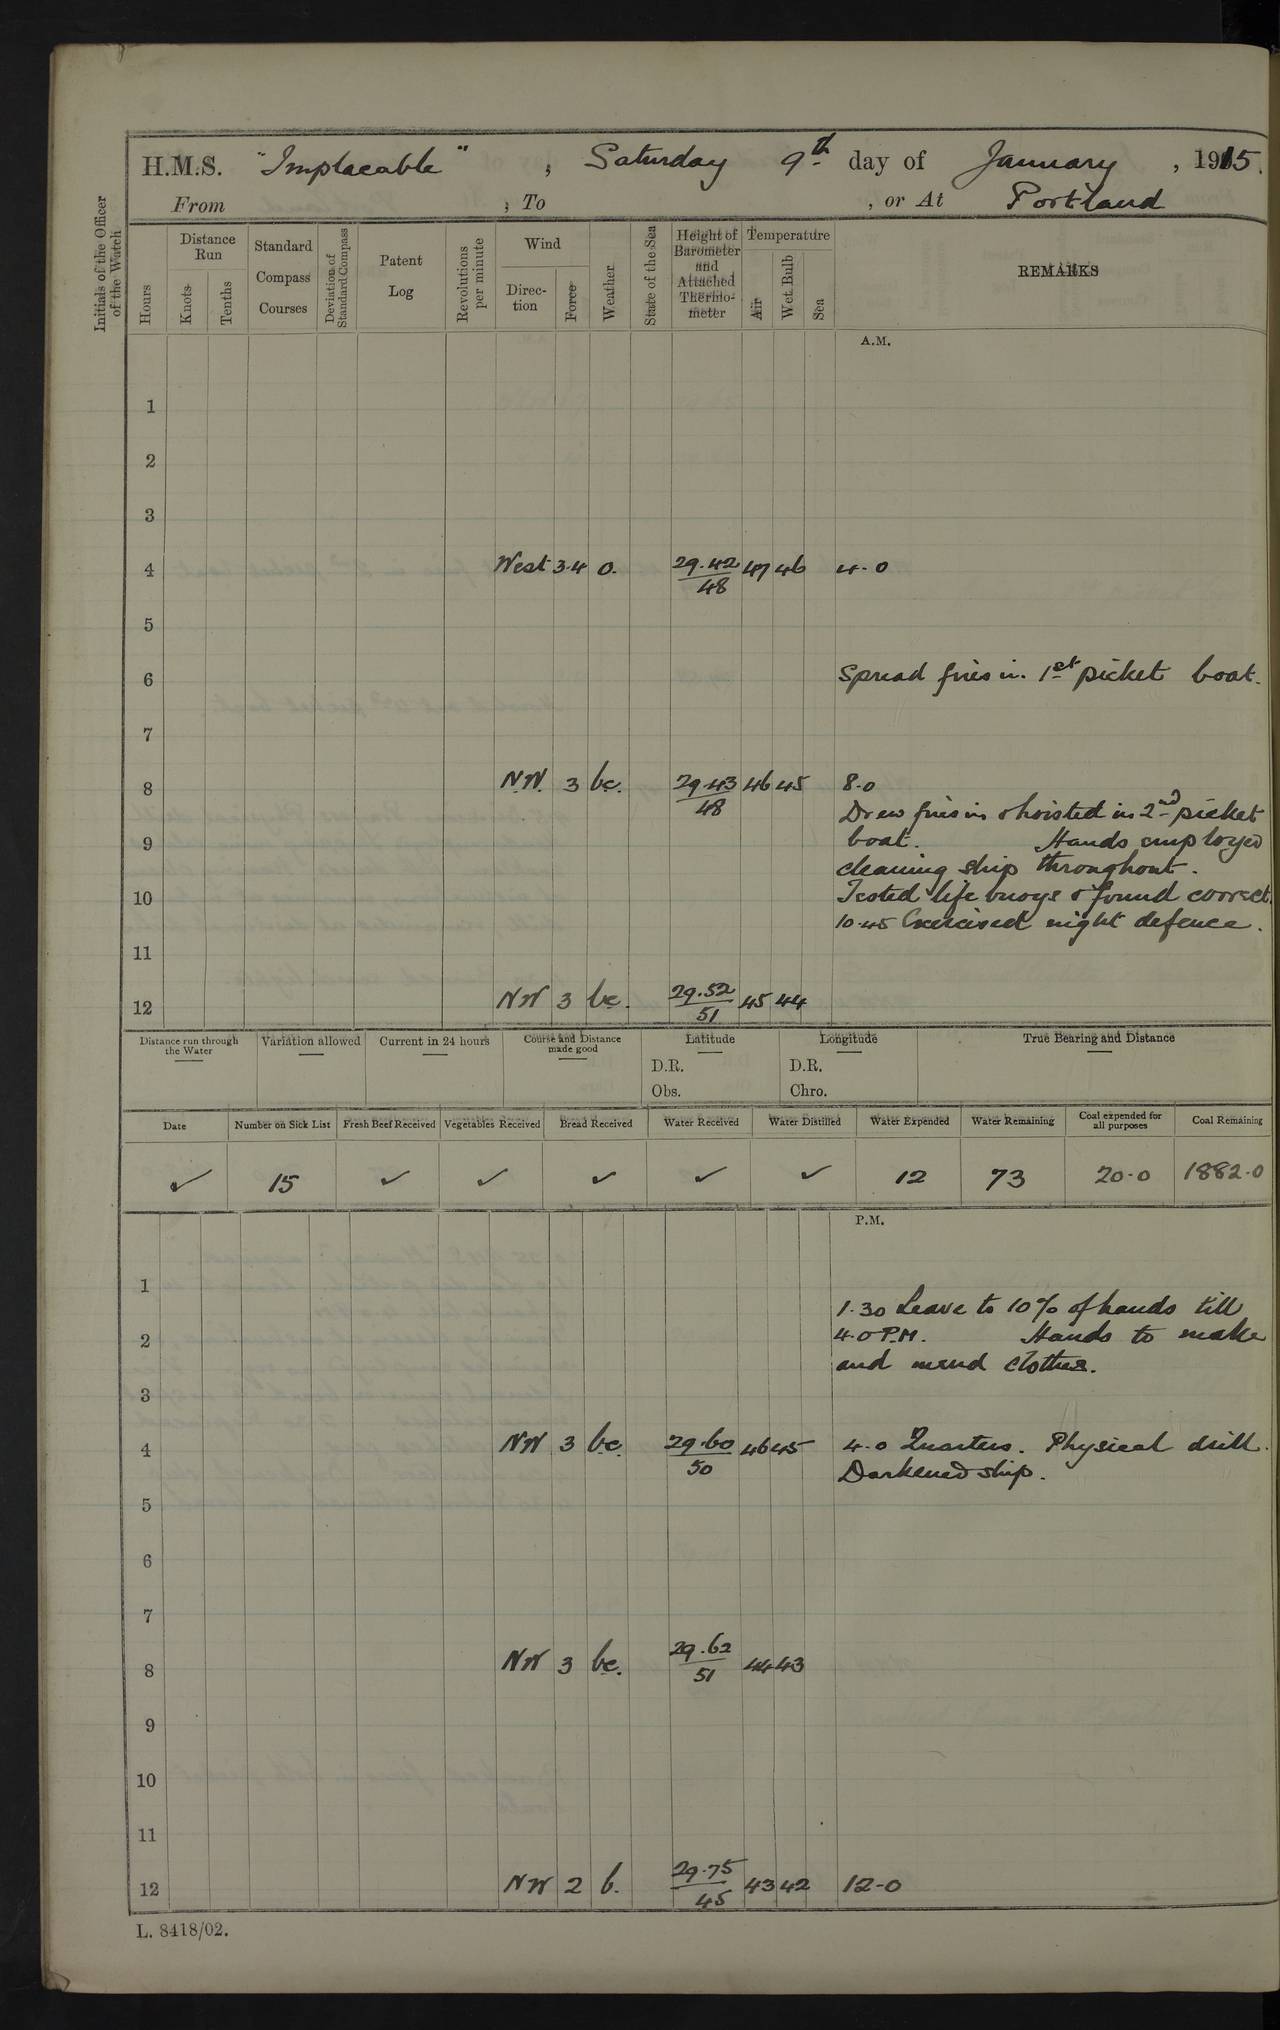 H.M.S. "Implacable", Saturday 9th day of January, 1915.
From , To , or At Portland
Initials of the Officer of the Watch
Hours
Distance Run
Knots
Tenths
Standard Compass Courses
Deviation of Standard Compass
Patent Log
Revolutions per minute
Wind
Direction
Force
Weather
State of the Sea
Height of Barometer and Attached Thermometer
Temperature
Air
Wet Bulb
Sea
REMARKS
A.M.
1
2
3
4 West 3.4 o. 29.42/48 47 46 4.0
5
6 Spread fires in 1st picket boat.
7
8 N.W. 3 bc. 29.43/48 46 45 8.0
Drew fires in & hoisted in 2nd picket
9 boat. Hands employed
cleaning ship throughout.
10 Tested life buoys & found correct.
10.45 Exercised night defence.
11
12 NW 3 bc. 29.52/51 45 44
Distance run through the Water
Variation allowed
Current in 24 hours
Course and Distance made good
Latitude
D.R.
Obs.
Longitude
D.R.
Chro.
True Bearing and Distance
Date Number on Sick List Fresh Beef Received Vegetables Received Bread Received Water Received Water Distilled Water Expended Water Remaining Coal expended for all purposes Coal Remaining
✓ 15 ✓ ✓ ✓ ✓ ✓ 12 73 20.0 1882.0
P.M.
1
1.30 Leave to 10% of hands till
2 4.0 P.M. Hands to make
and mend clothes.
3
4 NW 3 bc 29.60/50 46 45 4.0 Quarters. Physical drill.
Darkened ship.
5
6
7
8 NW 3 bc. 29.62/51 44 43
9
10
11
12 NW 2 b. 29.75/45 43 42 12.0
L. 8418/02.